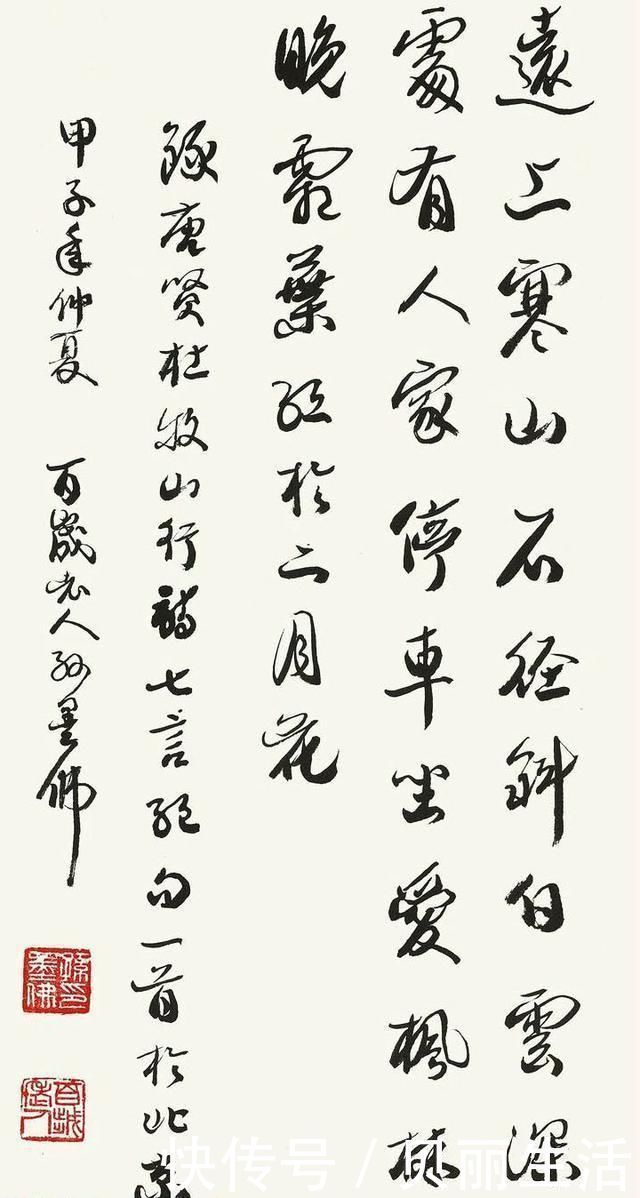 遠上寒山石径斜白雲深
處有人家停車坐愛楓林
晚霜葉紅於二月花
錄唐賢杜牧山行詩七言絕句一首於北京
甲子年仲夏 百歲老人孫墨佛
孫墨佛印
百歲老人
快传号/贝丽生活